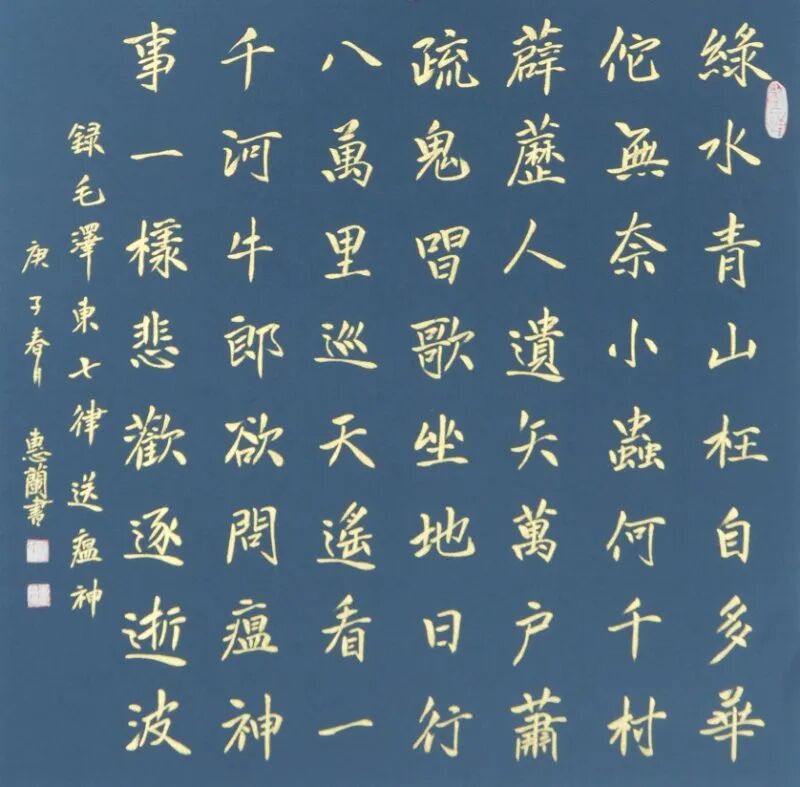 綠水青山枉自多華
佗無奈小蟲何千村
薜藶人遺矢萬户蕭
疏鬼唱歌坐地日行
八萬里巡天遙看一
千河牛郎欲問瘟神
事一樣悲歡逐逝波
録毛澤東七律送瘟神
庚子春月 惠蘭書